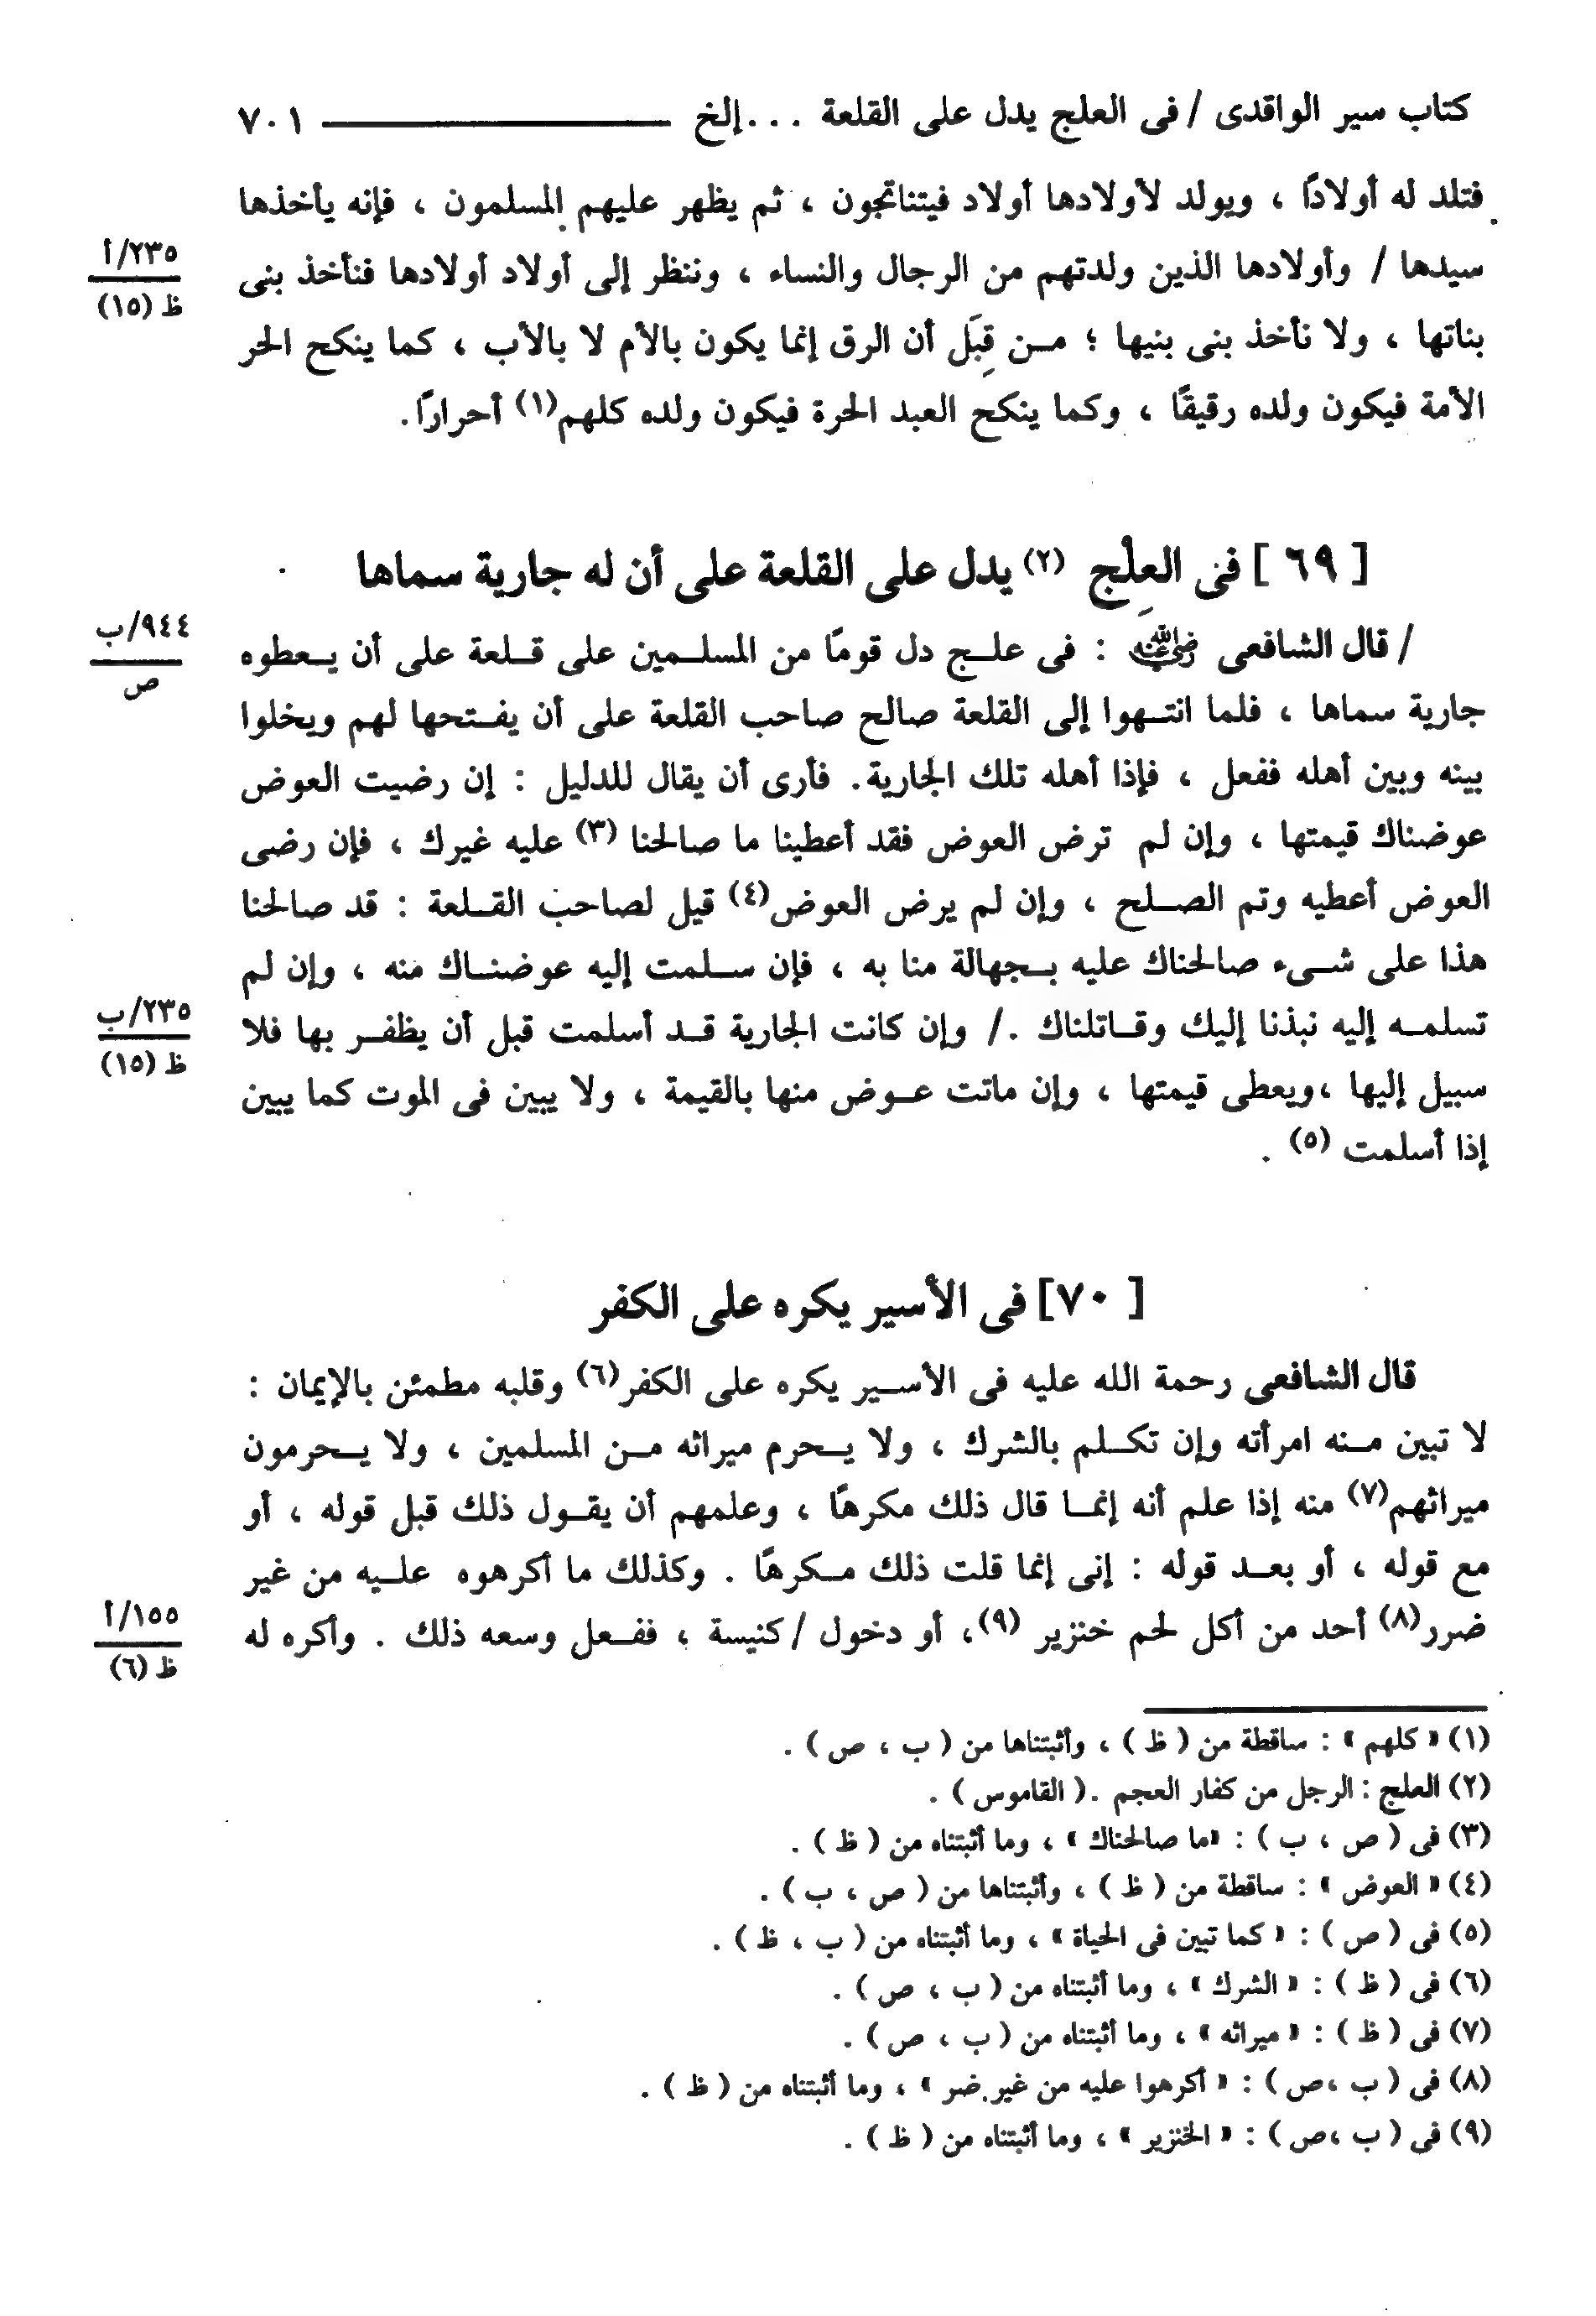 كتاب سير الواقدى / فى العلج يدل على القلعة . . . إلخ ٧٠١
فتلد له أولادًا ، ويولد لأولادها أولاد فيتناتجون ، ثم يظهر عليهم المسلمون ، فإنه يأخذها
سيدها / وأولادها الذين ولدتهم من الرجال والنساء ، وننظر إلى أولاد أولادها فنأخذ بنى
٢٣٥/أ
ظ (١٥)
بناتها ، ولا نأخذ بنى بنيها ؛ مـن قِبَل أن الرق إنما يكون بالأم لا بالأب ، كما ينكح الحر
الأمة فيكون ولده رقيقًا ، وكما ينكح العبد الحرة فيكون ولده كلهم(١) أحرارًا.
[ ٦٩ ] فى العِلْج (٢) يدل على القلعة على أن له جارية سماها
/ قال الشافعى رضي الله عنه : فى علـج دل قومًا من المسلـمين على قـلعة على أن يـعطوه
٩٤٤/ب
ص
جارية سماها ، فلما انتـهوا إلى القلعة صالح صاحب القلعة على أن يفـتحها لهم ويخلوا
بينه وبين أهله ففعل ، فإذا أهله تلك الجارية. فأرى أن يقال للدليل : إن رضيت العوض
عوضناك قيمتها ، وإن لم ترض العوض فقد أعطينا ما صالحنا (٣) عليه غيرك ، فإن رضى
العوض أعطيه وتم الصـلح ، وإن لم يرض العوض(٤) قيل لصاحب القـلعة : قد صالحنا
هذا على شـىء صالحناك عليه بـجهالة منا به ، فإن سـلمت إليه عوضنـاك منه ، وإن لم
تسلمـه إليه نبذنا إليك وقـاتلناك ./ وإن كانت الجارية قـد أسلمت قبل أن يظفـر بها فلا
٢٣٥/ب
ظ (١٥)
سبيل إليها ،ويعطى قيمتها ، وإن ماتت عـوض منها بالقيمة ، ولا يبين فى الموت كما يبين
إذا أسلمت (٥) .
[ ٧٠] فى الأسير يكره على الكفر
قال الشافعى رحمة الله عليه فى الأسـير يكره على الكفر(٦) وقلبه مطمئن بالإيمان :
لا تبين مـنه امرأته وإن تكـلم بالشرك ، ولا يـحرم ميراثه مـن المسلمين ، ولا يـحرمون
ميراثهم(٧) منه إذا علم أنه إنمـا قال ذلك مكرهًا ، وعلمهم أن يقـول ذلك قبل قوله ، أو
مع قوله ، أو بعـد قوله : إنى إنما قلت ذلك مـكرهًا . وكذلك ما أكرهوه علـيه من غير
ضرر(٨) أحد من أكل لحم خنزير (٩)، أو دخول / كنيسة ، ففـعل وسعه ذلك . وأكره له
١٥٥/أ
ظ (٦)
(١) « كلهم » : ساقطة من ( ظ ) ، وأثبتناها من ( ب ، ص ) .
(٢) العلج : الرجل من كفار العجم .( القاموس ) .
(٣) فى ( ص ، ب ) : «ما صالحناك » ، وما أثبتناه من ( ظ ) .
(٤) « العوض » : ساقطة من ( ظ ) ، وأثبتناها من ( ص ، ب ) .
(٥) فى ( ص ) : « كما تبين فى الحياة » ، وما أثبتناه من ( ب ، ظ ) .
(٦) فى ( ظ ) : « الشرك » ، وما أثبتناه من ( ب ، ص ) .
(٧) فى ( ظ ) : « ميراثه » ، وما أثبتناه من ( ب ، ص ) .
(٨) فى ( ب ،ص ) : « أكرهوا عليه من غير ضر » ، وما أثبتناه من ( ظ ) .
(٩) فى ( ب ،ص ) : « الخنزير » ، وما أثبتناه من ( ظ ) .